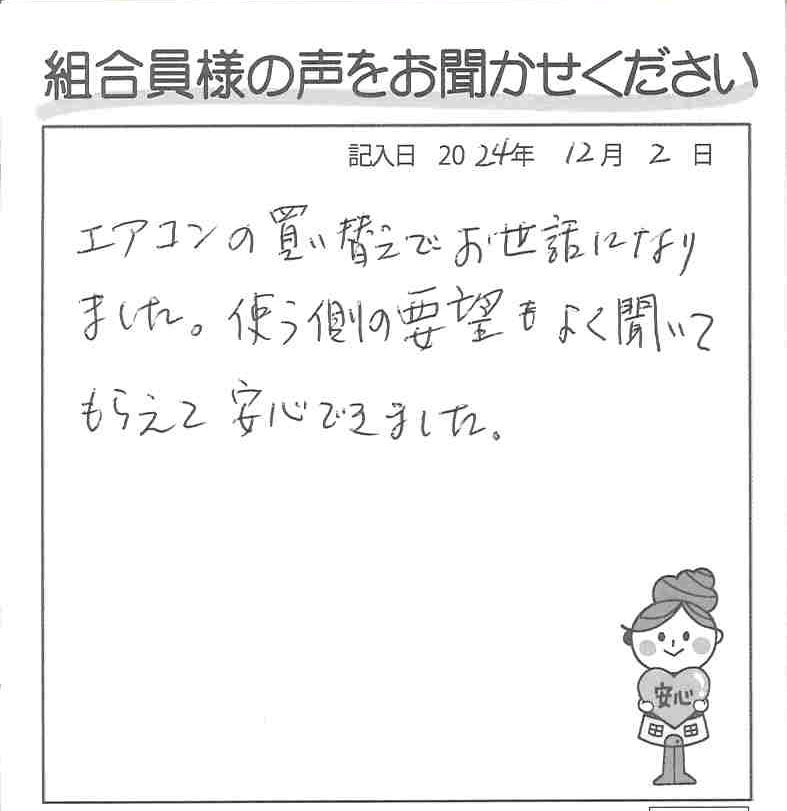 組合員様の声をお聞かせください
記入日 2024年 12月 2日
エアコンの買い替えでお世話になり
ました。使う側の要望もよく聞いて
もらえて安心できました。
安心